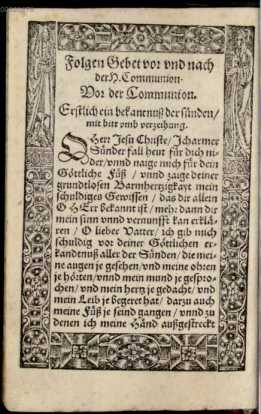 Folgen Gebet vor vnd nach
der H. Communion.
Vor der Communion.
Erstlich ein bekantnuß der sünden/
mit bitt vmb verzeihung.
O Herr Jesu Christe/ Ich armer
Sünder fall heut für dich ni-
der/ vnnd naige mich für dein
Göttliche Füß / vnnd zaige deiner
grundtlosen Barmhertzigkayt mein
schuldiges Gewissen / das dir allein
O HErr bekannt ist / mehr dann dir
mein sinn vnnd vernunfft kan erklä-
ren / O lieber Vatter / ich gib mich
schuldig vor deiner Göttlichen er-
kandtnuß aller der Sünden/ die mei-
ne augen je gesehen/ vnd meine ohren
je hörten/ vnnd mein mund je gespro-
chen/ vnd mein hertz je gedacht/ vnd
mein Leib je begeret hat/ darzu auch
meine Füß je seind gangen / vnnd zu
denen ich meine Händ außgestreckt